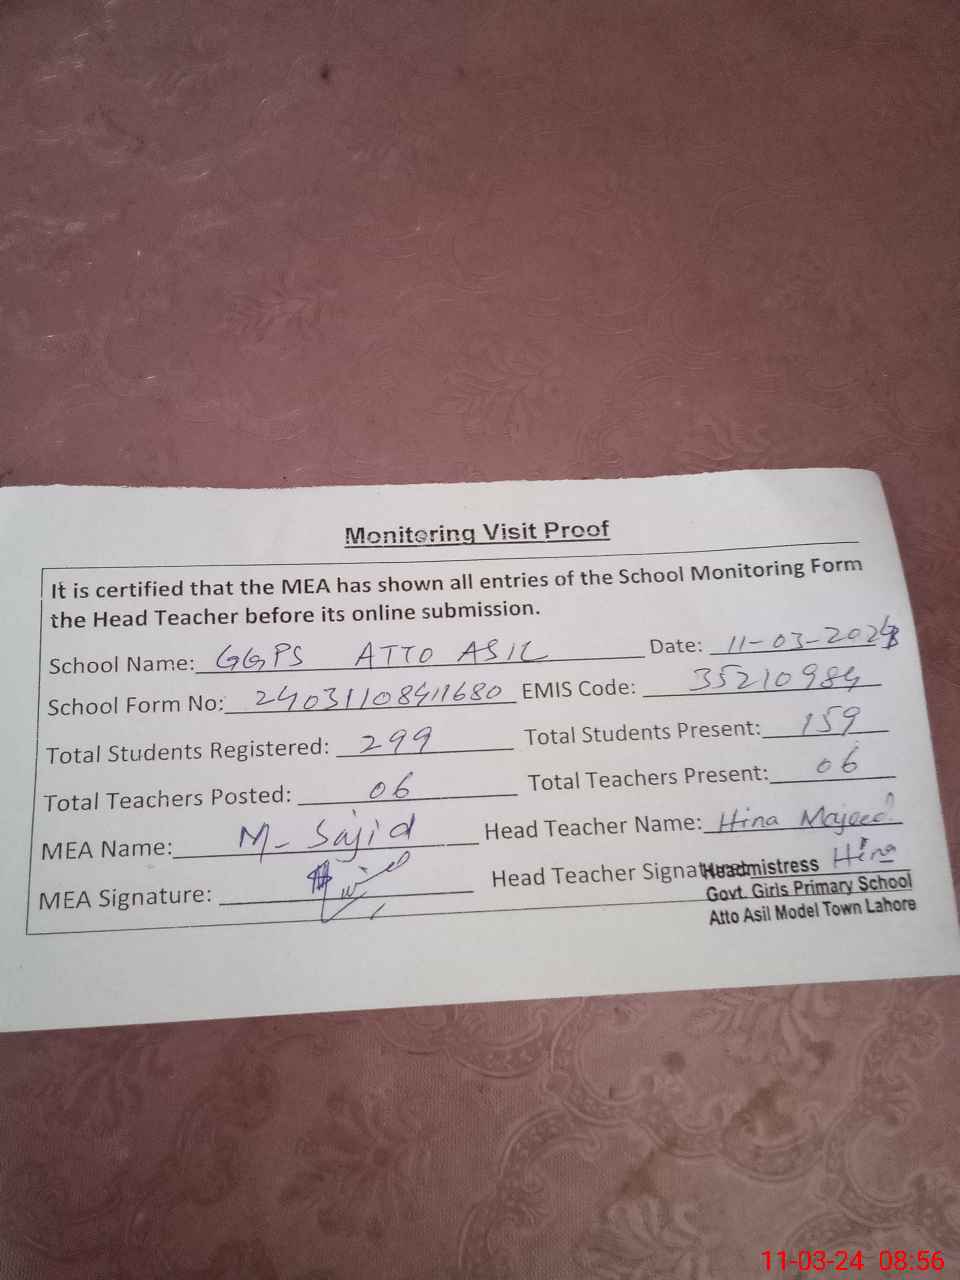 Monitoring Visit Proof
It is certified that the MEA has shown all entries of the School Monitoring Form
the Head Teacher before its online submission.
School Name: GGPS ATTO ASIL Date: 11-03-2024
School Form No: 24031108411680 EMIS Code: 35210984
Total Students Registered: 299 Total Students Present: 159
Total Teachers Posted: 06 Total Teachers Present: 06
MEA Name: M- Sajid Head Teacher Name: Hina Majeed
MEA Signature: Head Teacher Signature: Hina
Headmistress
Govt. Girls Primary School
Atto Asil Model Town Lahore
11-03-24 08:56